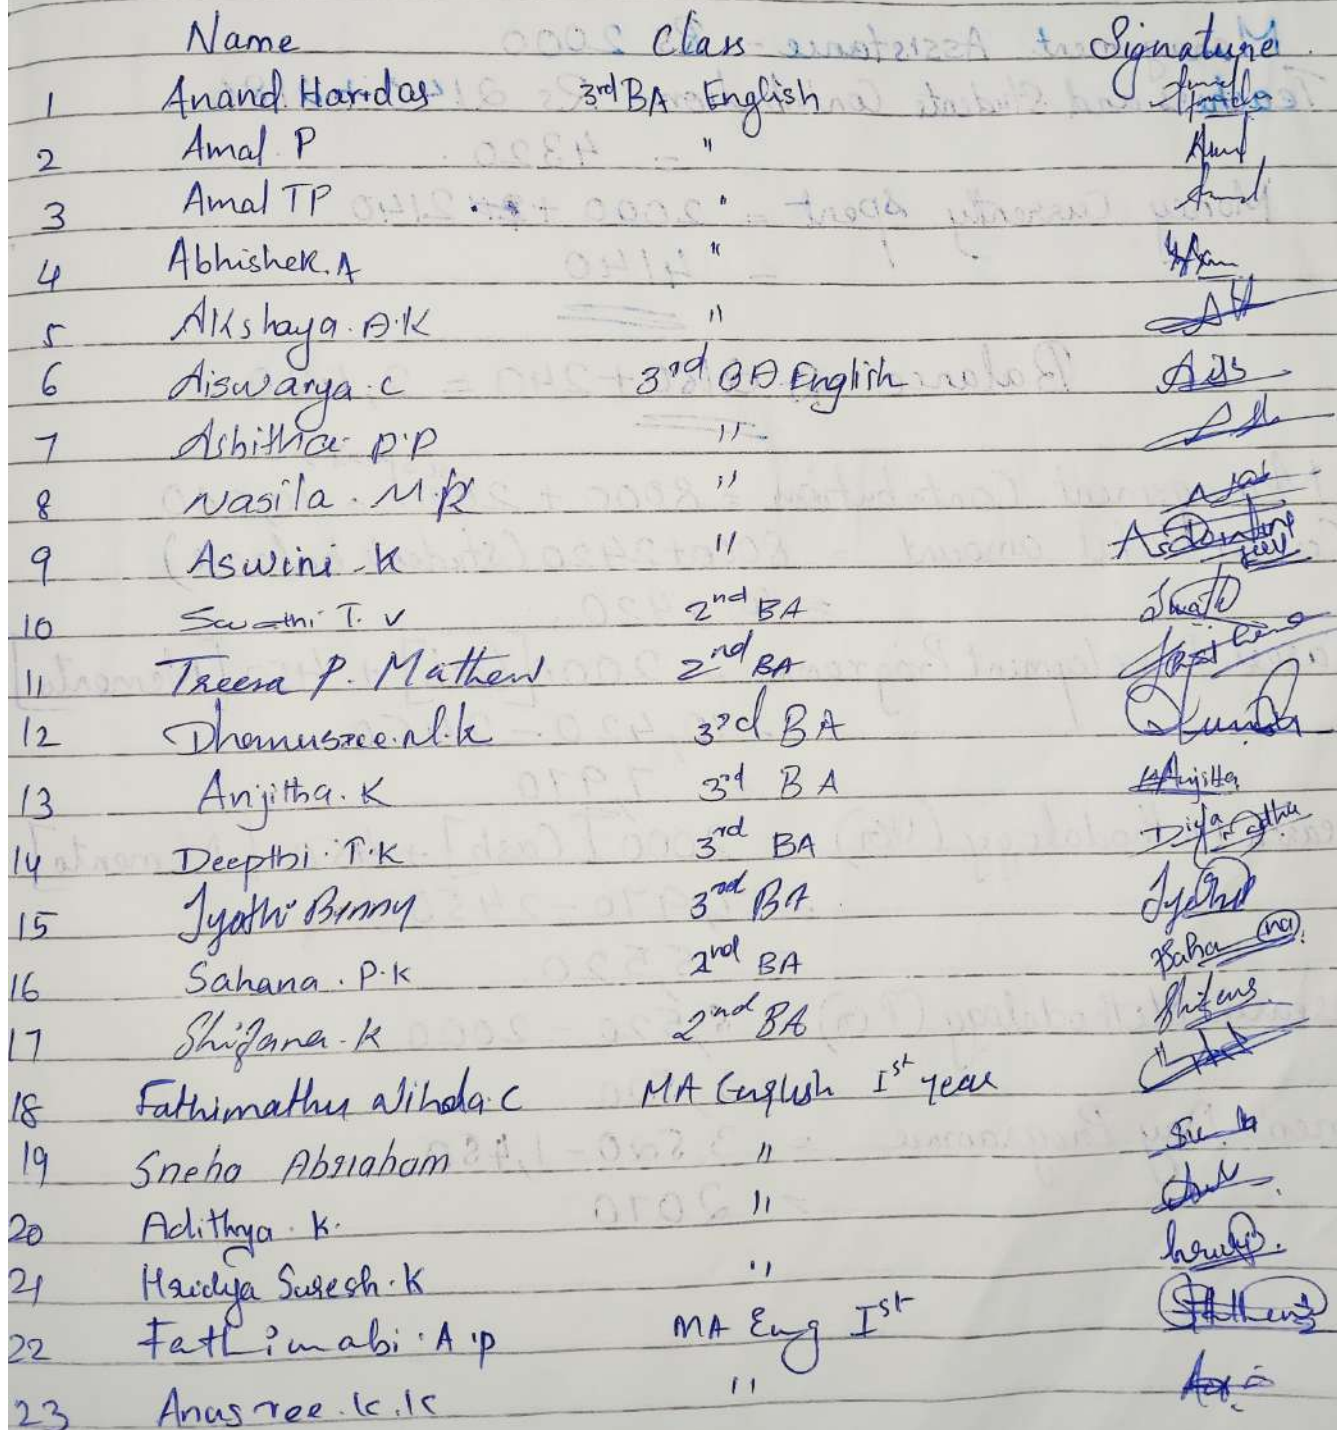 Name Class Signature
1 Anand Haridas 3rd BA English
2 Amal P "
3 Amal TP "
4 Abhishek. A "
5 Akshaya. A.K "
6 Aiswarya. C 3rd BA English Aiss
7 Ashitha. P.P "
8 Nasila. M.K "
9 Aswini. K "
10 Swathi T. V 2nd BA Swathi
11 Treesa P. Mathew 2nd BA
12 Dhanusree. M.K 3rd BA
13 Anjitha. K 3rd BA Anjitha
14 Deepthi. T.K 3rd BA
15 Jyothi Benny 3rd BA Jyothi
16 Sahana. P.K 2nd BA Sahana
17 Shifana. K 2nd BA
18 Fathimathu Nihda. C MA English Ist year
19 Sneha Abraham "
20 Adithya. K. "
21 Hridya Suresh. K "
22 Fathimabi. A.P MA Eng Ist
23 Anusree. K.K "